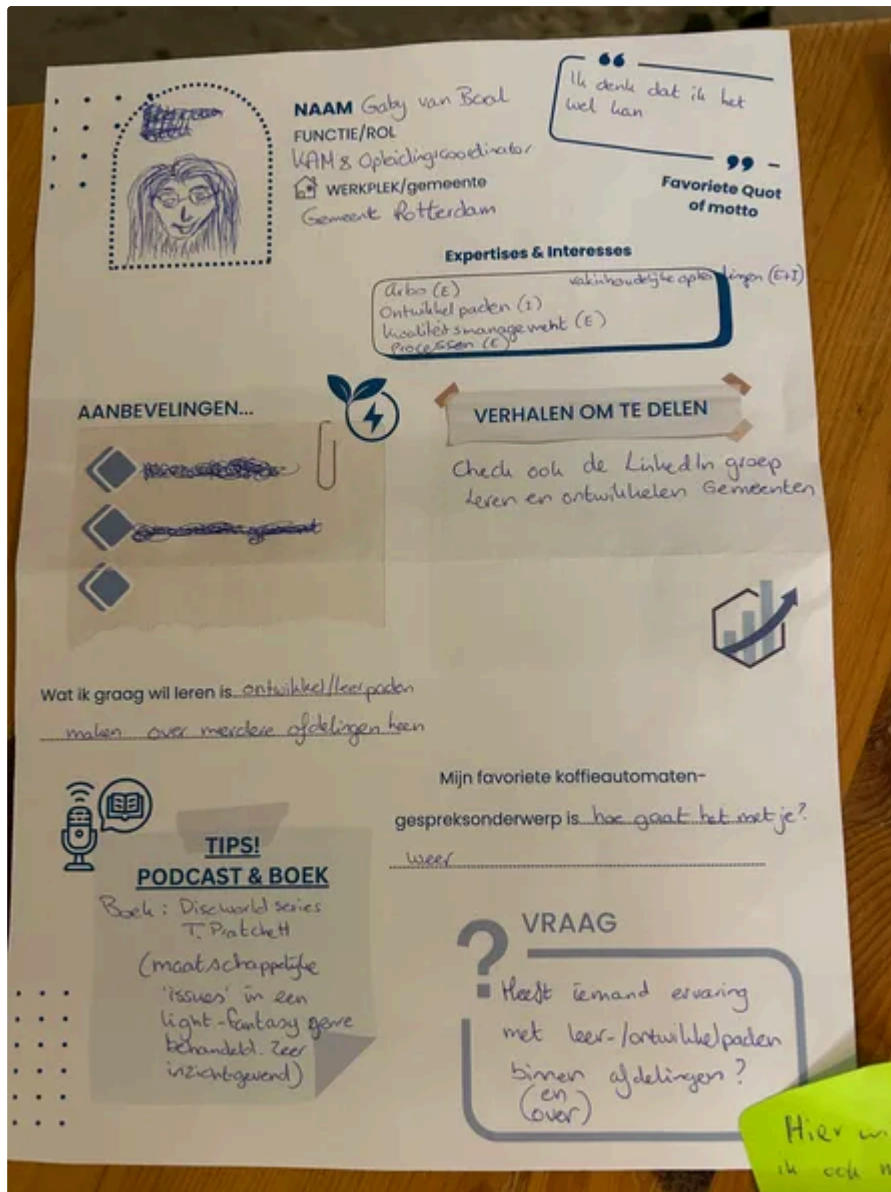 NAAM Gaby van Baal
FUNCTIE/ROL
KAM & Opleidingscoordinator
WERKPLEK/gemeente
Gemeente Rotterdam
“
Ik denk dat ik het
wel kan
”
Favoriete Quot
of motto
Expertises & Interesses
Arbo (E) vakinhoudelijke opleidingen (E+I)
Ontwikkelpaden (I)
kwaliteitsmanagement (E)
Processen (E)
AANBEVELINGEN...
VERHALEN OM TE DELEN
Check ook de LinkedIn groep
Leren en ontwikkelen Gemeenten
Wat ik graag wil leren is ontwikkel/leerpaden
maken over merdere afdelingen heen
Mijn favoriete koffieautomaten-
gespreksonderwerp is hoe gaat het met je?
weer
TIPS!
PODCAST & BOEK
Boek: Discworld series
T. Pratchett
(maatschappelijke
'issues' in een
light-fantasy genre
behandeld. Zeer
inzichtgevend)
? VRAAG
Heeft iemand ervaring
met leer-/ontwikkelpaden
binnen afdelingen?
(en
over)
Hier
ik ook